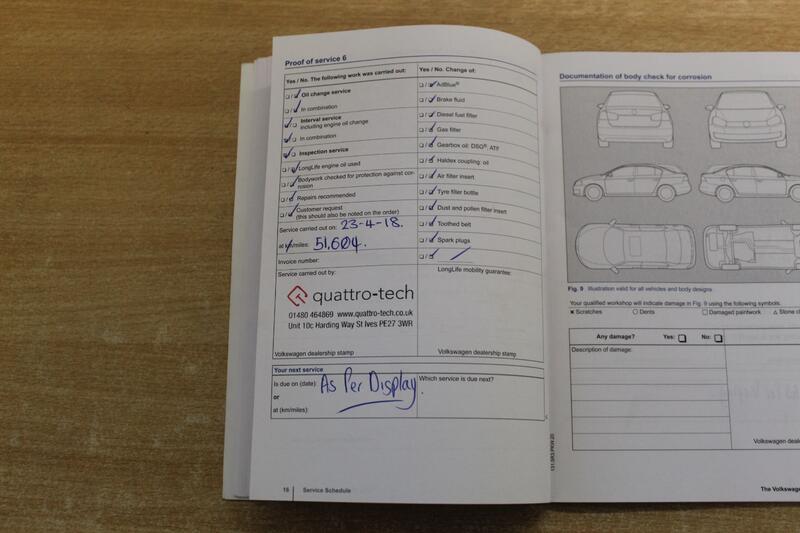 Proof of service 6
Yes / No. The following work was carried out:
Oil change service
In combination
Interval service
including engine oil change
In combination
Inspection service
LongLife engine oil used
Bodywork checked for protection against cor-
rosion
Repairs recommended
Customer request
(this should also be noted on the order)
Service carried out on: 23-4-18.
at km/miles: 51,604.
Invoice number:
Service carried out by:
quattro-tech
01480 464869 www.quattro-tech.co.uk
Unit 10c Harding Way St Ives PE27 3WR
Volkswagen dealership stamp
Yes / No. Change of:
AdBlue®
Brake fluid
Diesel fuel filter
Gas filter
Gearbox oil: DSG®, ATF
Haldex coupling: oil
Air filter insert
Tyre filler bottle
Dust and pollen filter insert
Toothed belt
Spark plugs
LongLife mobility guarantee:
Volkswagen dealership stamp
Your next service
Is due on (date): As Per Display.
or
at (km/miles):
Which service is due next?
131.5R3.PKW.20
16 Service Schedule
Documentation of body check for corrosion
Fig. 9 Illustration valid for all vehicles and body designs.
Your qualified workshop will indicate damage in Fig. 9 using the following symbols.
Scratches Dents Damaged paintwork Stone
Any damage? Yes: No:
Description of damage:
Volkswagen
The Volkswagen